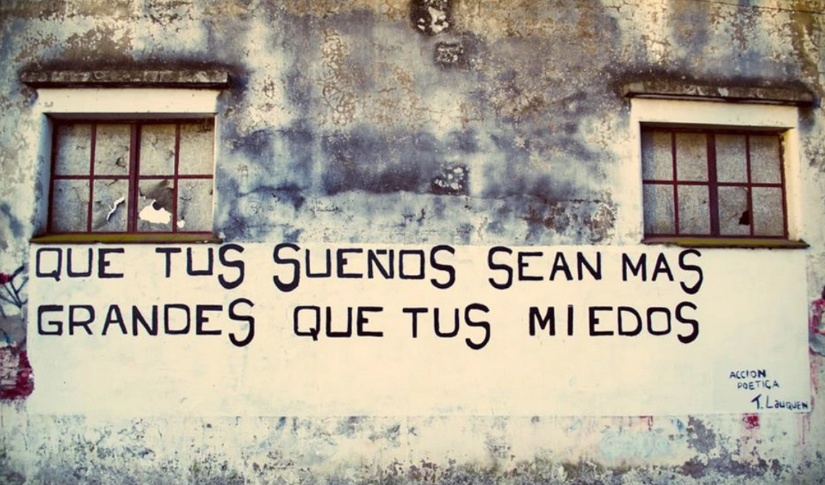 QUE TUS SUEÑOS SEAN MAS
GRANDES QUE TUS MIEDOS
ACCION
POETICA
T. LAUQUEN